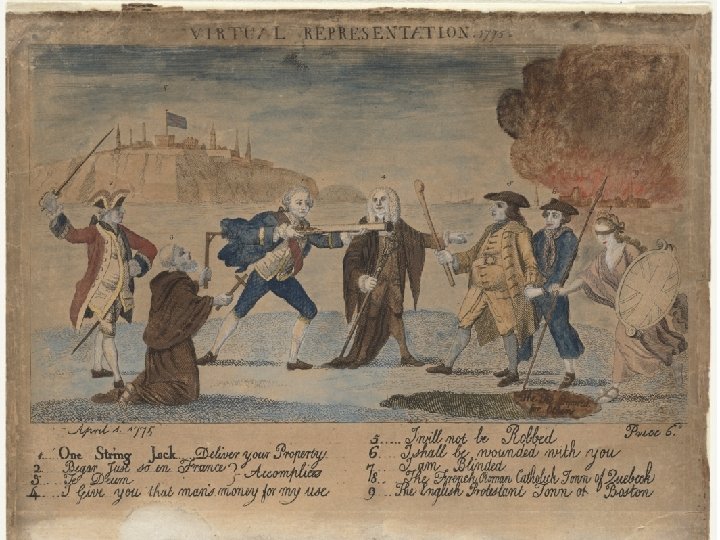 VIRTUAL REPRESENTATION. 1775.
April 1. 1775.
Price 6.d
1... One String Jack. Deliver your Property
2.. Begar Just so in France } Accomplices
3.. Te Deum
4... I Give you that man's money for my use
5..... I will not be Robbed
6... I shall be wounded with you
7... I am Blinded
8... The French Roman Catholick Town of Quebeck
9... The English Protestant Town of Boston